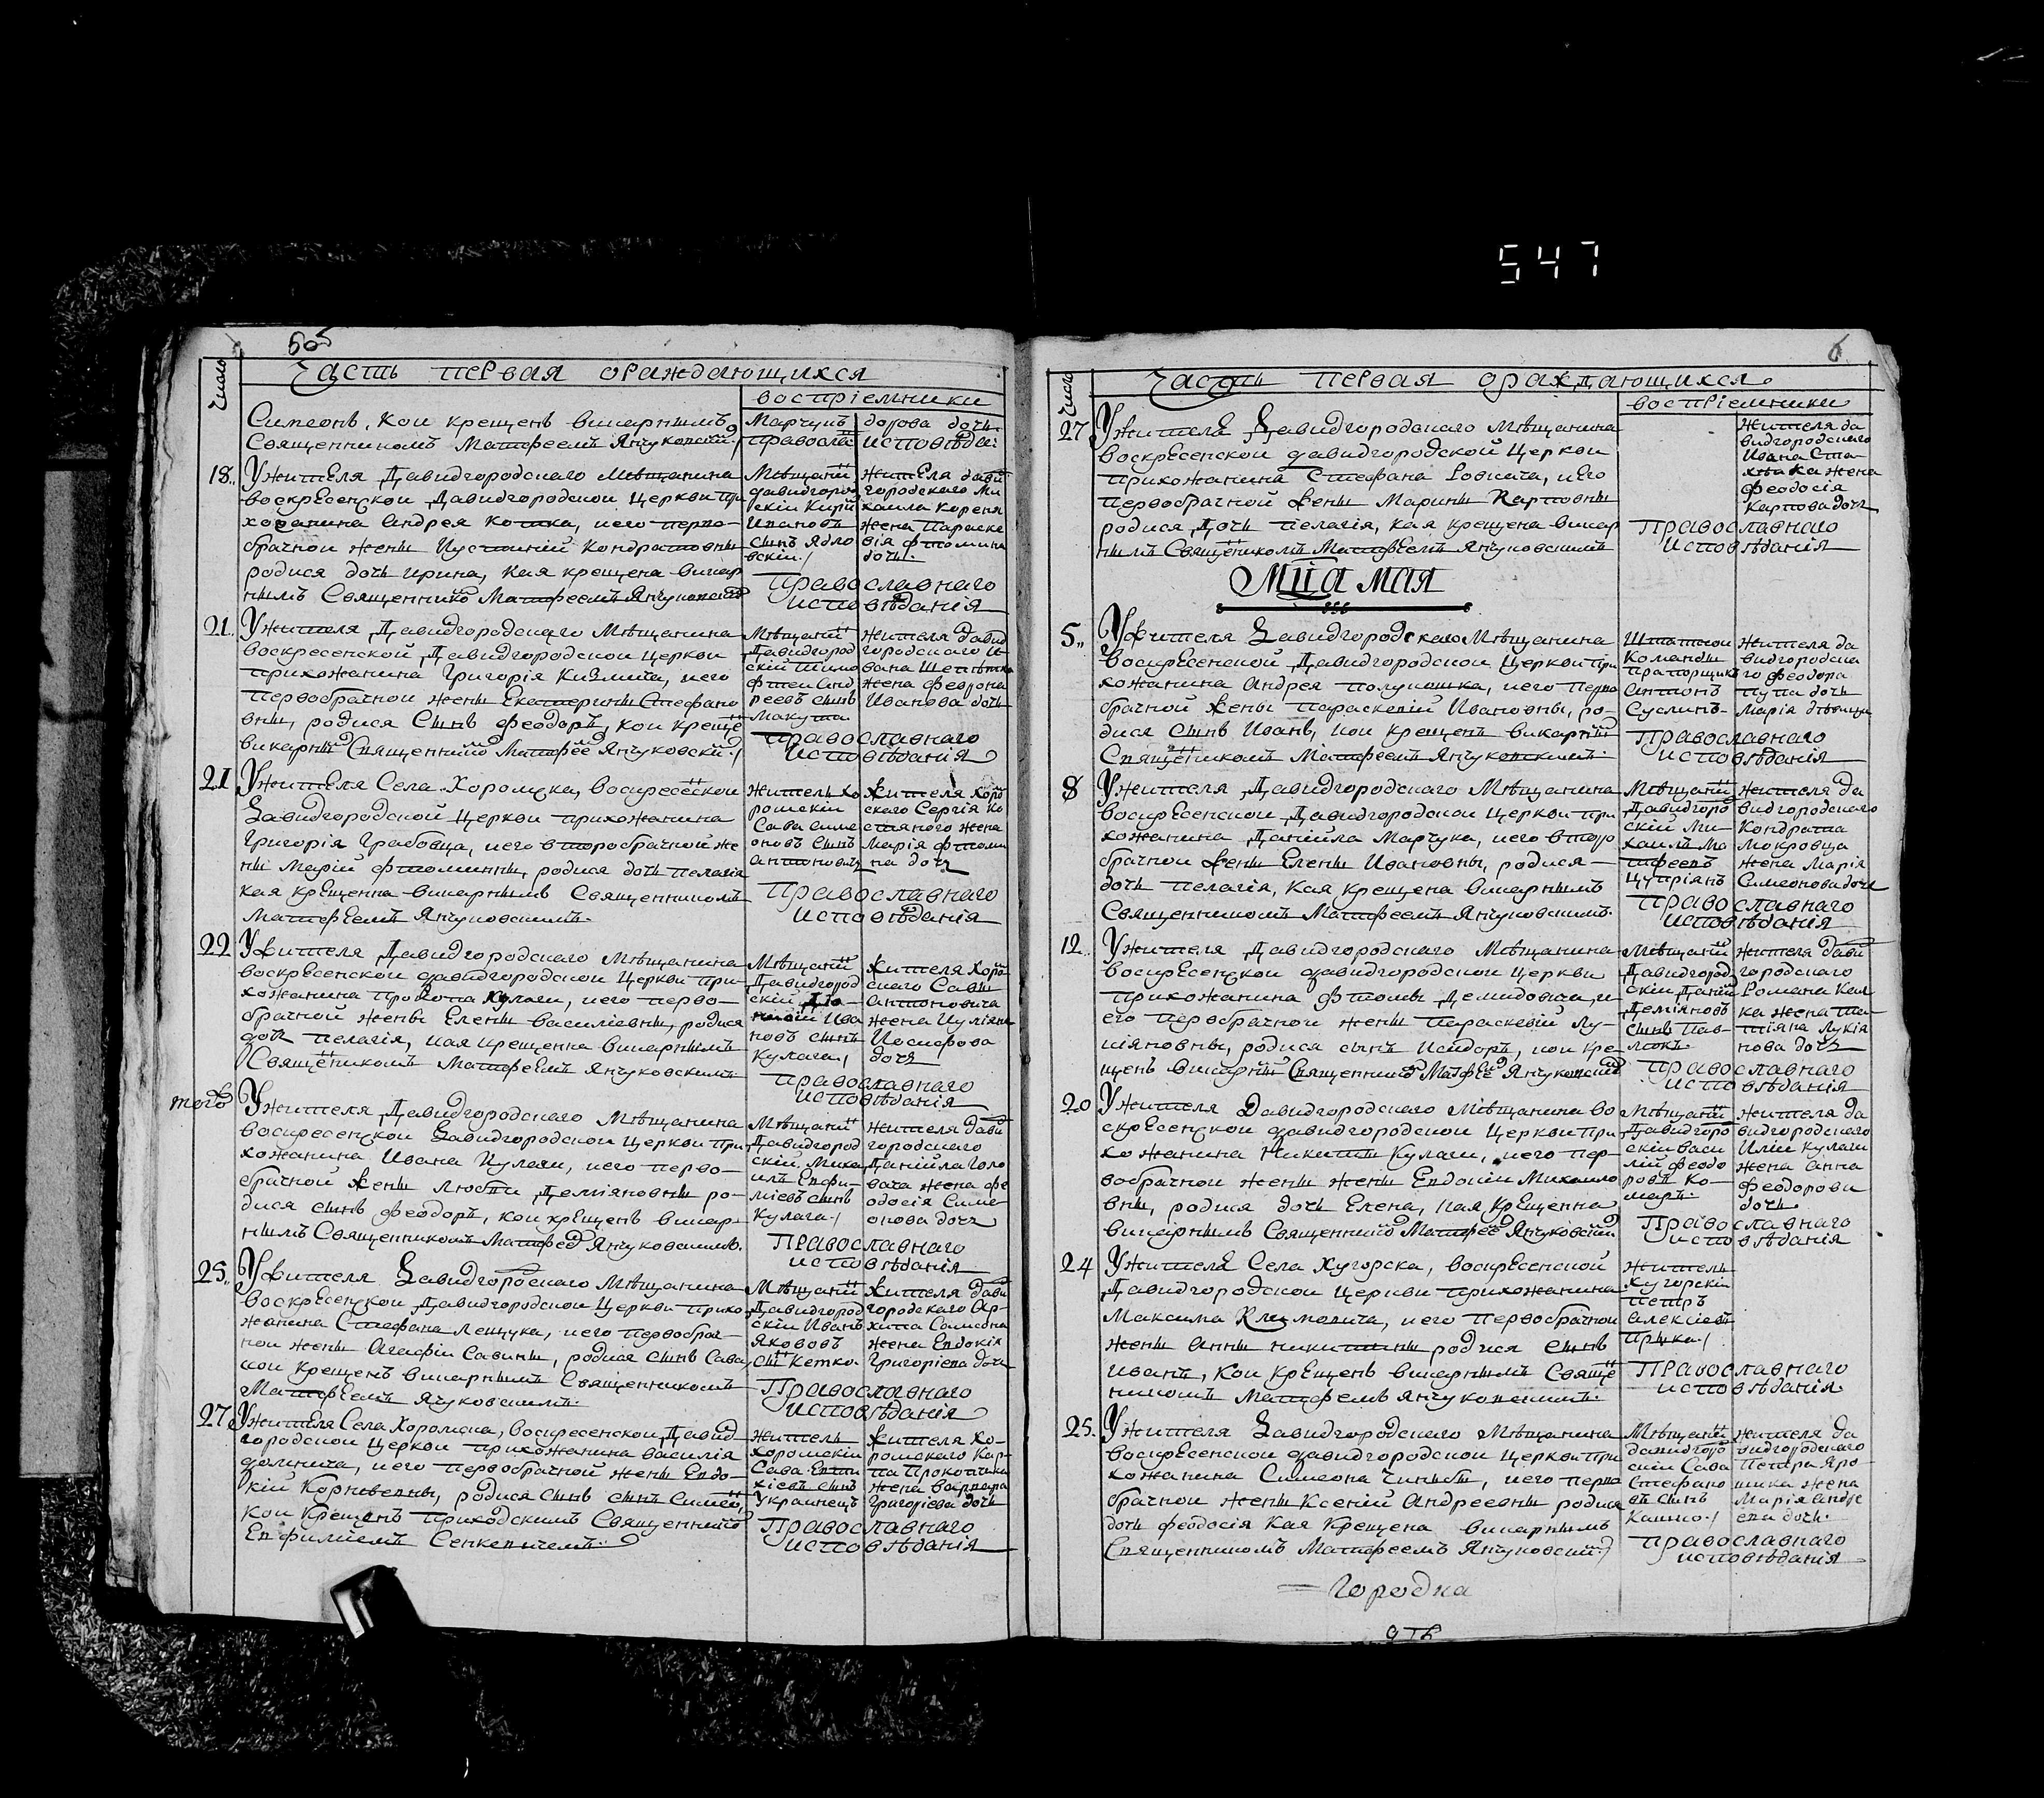 547
565
Часть первая ораждающихся
Число
воспріемники
Симеонъ, кои крещенъ викарнымъ
Священникомъ Матфеемъ Янчуковскй
Марчукъ
правосла
дорова дочь
исповѣда:
18.. У жителя Давидгородского Мѣщанина
воскресенской Давидгородской Церкви при
хожанина Андрея Котка, и его перво-
брачной жены Иустиній Кондратовны
родися дочь ирина, кая крещена викар
нымъ Священнико Матфеемъ Янчуковски
Мѣщани
давидгород
скіи Кири
Ивановъ
сынъ Ядло
вскіи
жителя дави
городского Ми
хаила Кореня
жена Параске
вія Фтомина
дочь.
Православнаго
исповѣданія
21.. У жителя Давидгородского Мѣщанина
воскресенской Давидгородскои Церкви
прихожанина Григорія Кизмича, и его
первобрачной жены Екатерины Стефано
вны, родися Сынъ Феодоръ, кои креще
викарны Священнико Матфее Янчуковскй
Мѣщани
Давидгород
скій Тимо
фтеи Анд
реевъ сынъ
Макута.
жителя Давид
городского И
вана
жена Феврона
Иванова дочь
православнаго
исповѣданія
21 У жителя Села Хоромска, воскресеской
Давидгородской Церкви прихожанина
Григорія Грабовца, и его второбрачной же
ны Марій Фтоминны, родися дочь пелагія
кая крещенна викарнымъ Священникомъ
Матфеемъ Янчуковскимъ.
житель Хо
ромскіи
Сава Симе
оновъ Сынъ
Антоновичъ
жителя Хоро
ского Сергія Ко
стяного жена
Марія Фтоми
на дочь
Православнаго
исповѣданія
22 У жителя Давидгородского Мѣщанина
воскресенскои давидгородскои Церкви при
хожанина Прокопа Кулаги, и его перво-
брачной жены Елены Василіевны, родися
доч пелагія, кая крещенна викарнымъ
Священикомъ Матфеемъ Янчуковскимъ.
Мѣщани
Давидгород
скій
Ива
новъ сынъ
Кулага.
жителя Хоро
ского Савы
Антоновича
жена Иуліяна
Иосифова
дочь
Православнаго
исповѣданія
того У жителя Давидгородского Мѣщанина
воскресенскои Давидгородскои Церкви при
хожанина Ивана Кулаги, и его перво-
брачной жены Деміяновны ро-
дися сынъ Феодоръ, кои крещенъ викар-
нымъ Священникомъ Матфее Янчуковскимъ.
Мѣщани
Давидгород
скіи Миха
илъ Евфи-
міевъ сынъ
Кулага
жителя Дави
городского
Даніила Голо
вача жена Фе
одосія Симе-
онова дочь
Православнаго
исповѣданія
25.. У жителя Давидгороского Мѣщанина
воскресенскои Давидгородскои Церкви прихо
жанина Стефана Лещука, и его первобрач-
нои жены Агафіи Савины, родися сынъ Сава,
кои крещенъ викарнымъ Священникомъ
Матфеемъ Ячуковскимъ.
Мѣщани
Давидгород
скіи Иванъ
Яковов
сы Кетко.
жителя Дави
городского Ар-
хипа
жена Евдокія
Григоріева дочь
Православнаго
исповѣданія
27 У жителя Села Хоромска, воскресенскои Давид
городскои Церкви прихожанина Василія
и его первобрачной жены Евдо-
кій Корнѣевны, родися сынъ сынъ Симео,
кои крещенъ приходскимъ Священнико
Евфиміемъ Сенкевичемъ.
житель
хоромскіи
Сава
сынъ
Украинецъ
жителя Хо-
ромского Кар-
па Прокопчика
жена Варвара
Григоріева дочь
Православнаго
исповѣданія
6
Часть первая ораждающихся
Число
воспріемники
27 У жителя Давидгородского Мѣщанина
Воскресенскои давидгородской Церкви
прихожанина Стефана и его
первобрачной жены Марины Карповны
родися Дочь пелагія, кая крещена викар
нымъ Священикомъ Матфеемъ Янчуковскимъ
жителя да
видгородского
Ивана Ста-
жена
Феодосія
Карпова дочь
Православнаго
исповѣданія
Мца мая
5.. У жителя Давидгородского Мѣщанина
Воскресенской Давидгородскои Церкви при
хожанина Андрея Полукошка, и его перво
брачной жены Параскевій Ивановны, ро-
дися сынъ Иванъ, кои крещенъ викарны
Священикомъ Матфеемъ Янчуковскимъ.
Штатнои
Команды
Прапорщик
Антонъ
Суслинъ.
жителя да
видгородска
го Феодора
Пупа дочь
Марія дѣвица
Православнаго
исповѣданія
8 У жителя Давидгородского Мѣщанина
воскресенскои Давидгородскои Церкви при
хожанина Даніила Марчука, и его второ
брачной жены Елены Ивановны, родися
дочь пелагія, кая крещена викарнымъ
Священникомъ Матфеемъ Янчуковскимъ.
Мѣщани
Давидгоро
скій Ми-
хаилъ Ма
тфеевъ
Цупріянъ
жителя да
видгородского
Кондрата
Мокровца
жена Марія
Симеонова дочь
Православнаго
исповѣданія
12. У жителя Давидгородского Мѣщанина
воскресенскои давидгородскои Церкви
прихожанина Фтомы Демидовича, и
его первобрачной жены Параскевій Лу-
кіяновны, родися сынъ Исидоръ, кои кре-
щенъ викарны Священнико Матфее Янчуковски
Мѣщани
Давидгород
скіи Дани
Деміяновъ
сынъ Пав-
люкъ.
жителя Дави
городского
Романа
жена Та-
тіяна Лукія
нова дочь
Православнаго
исповѣданія
20 У жителя Давидгородского Мѣщанина во
скресенскои давидгородскои Церкви при
хожанина Никиты Кулаги, и его пер-
вобрачнои жены жены Евдокіи Михаило
вны, родися дочь Елена, кая крещенна
викарнымъ Священнико Матфее Янчуковски
Мѣщани
Давидгоро
скіи Васи
лій Феодо
ровъ Ко-
маръ.
жителя да
видгородского
Иліи Кулаги
жена Анна
Феодорови
дочь
Православнаго
исповѣданія
24 У жителя Села Хугорска, воскресенской
Давидгородскои Церкви прихожанина
Максима Климовича, и его первобрачнои
жены Анны Никитины родися сынъ
Иванъ, кои крещенъ викарнымъ Свяще
никомъ Матфеемъ Янчуковскимъ.
житель
Хугорскіи
Петръ
Алексіевъ
Православнаго
исповѣданія
25. У жителя Давидгородского Мѣщанина
воскресенскои давидгородскои Церкви при
хожанина Симеона и его перво
брачнои жены Ксеній Андреевны родися
дочь Феодосія Кая Крещена викарнымъ
Священникомъ Матфеемъ Янчуковский
Мѣщани
давидгоро
скіи Сава
Стефано
въ сынъ
жителя да
видгородского
Петра Яро-
шика жена
Марія Андре
ева дочь.
Православнаго
исповѣданія
Городка